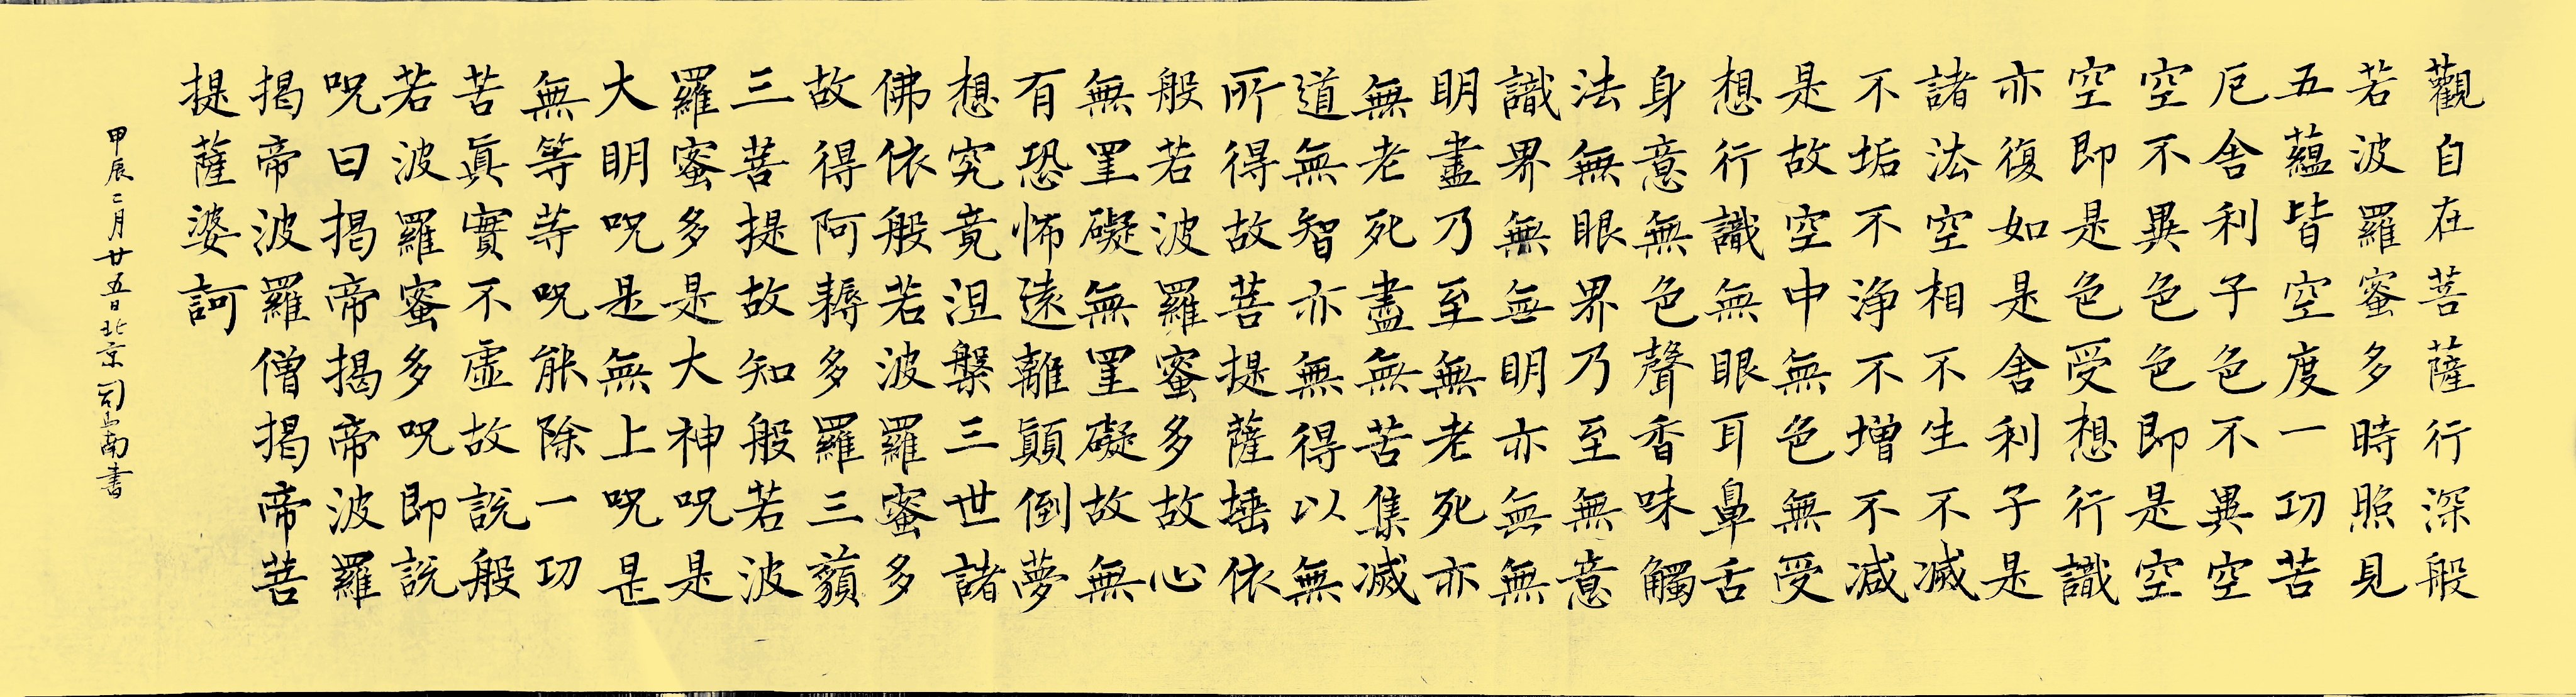 觀自在菩薩行深般
若波羅蜜多時照見
五蘊皆空度一切苦
厄舍利子色不異空
空不異色色即是空
空即是色受想行識
亦復如是舍利子是
諸法空相不生不滅
不垢不淨不增不減
是故空中無色無受
想行識無眼耳鼻舌
身意無色聲香味觸
法無眼界乃至無意
識界無無明亦無無
明盡乃至無老死亦
無老死盡無苦集滅
道無智亦無得以無
所得故菩提薩埵依
般若波羅蜜多故心
無罣礙無罣礙故無
有恐怖遠離顛倒夢
想究竟涅槃三世諸
佛依般若波羅蜜多
故得阿耨多羅三藐
三菩提故知般若波
羅蜜多是大神呪是
大明呪是無上呪是
無等等呪能除一切
苦眞實不虛故說般
若波羅蜜多呪即說
呪曰揭帝揭帝波羅
揭帝波羅僧揭帝菩
提薩婆訶
甲辰二月廿五日北京司南書